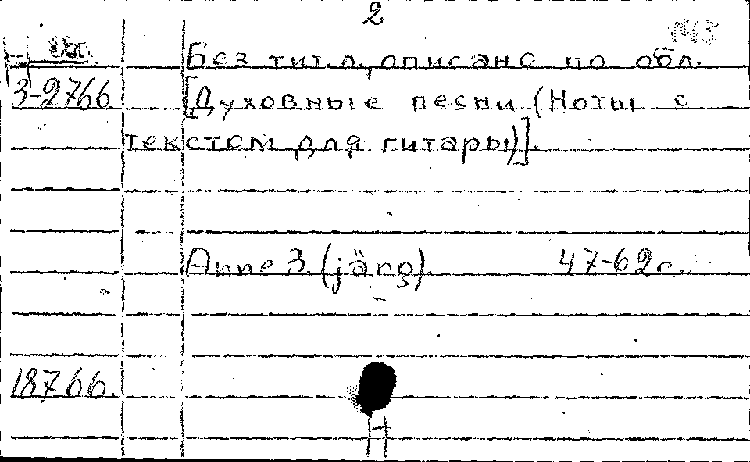 2
Без тит.л., описано по обл.
3-2766 [Духовные песни (Ноты с
текстом для гитары)].
Anne 3. (järg) 47-62 с.
18766.